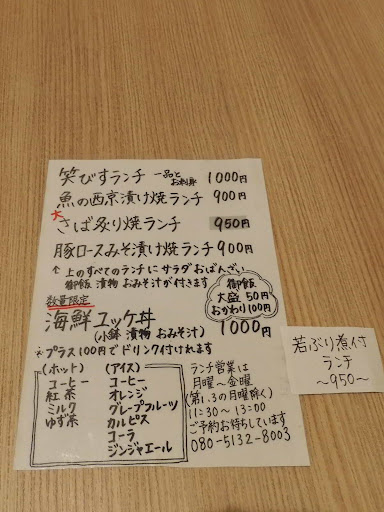 笑びすランチ 一品とお刺身 1000円
魚の西京漬け焼ランチ 900円
大さば炙り焼ランチ 950円
豚ロースみそ漬け焼ランチ 900円
↑ 上のすべてのランチにサラダおばんざい
御飯 漬物 おみそ汁が付きます
御飯
大盛 50円
おかわり100円
数量限定
海鮮ユッケ丼 1000円
(小鉢 漬物 おみそ汁)
*プラス100円でドリンク付けれます
(ホット)
コーヒー
紅茶
ミルク
ゆず茶
(アイス)
コーヒー
オレンジ
グレープフルーツ
カルピス
コーラ
ジンジャエール
ランチ営業は
月曜〜金曜
(第1.3の月曜除く)
11:30〜13:00
ご予約お待ちしています
080-5132-8003
若ぶり煮付
ランチ
〜950〜